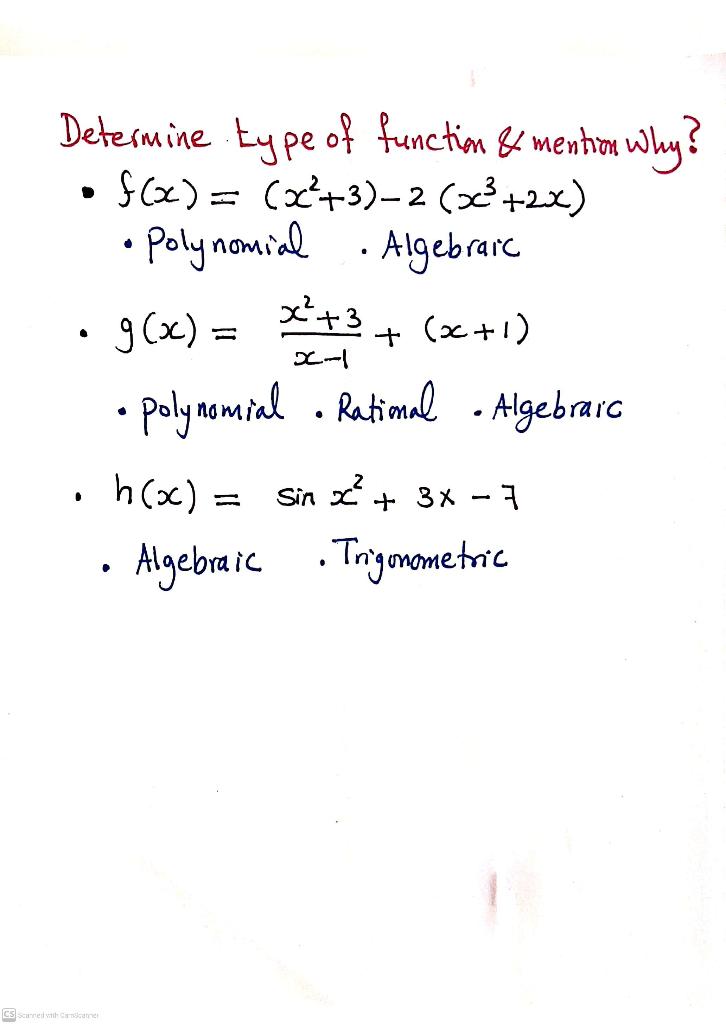 Determine type of function & mention why?
• f(x) = (x²+3)-2(x³+2x)
• Polynomial • Algebraic
• g(x) = \frac{x²+3}{x-1} + (x+1)
• polynomial • Rational • Algebraic
• h(x) = sin x² + 3x - 7
• Algebraic • Trigonometric
CS Scanned with CamScanner